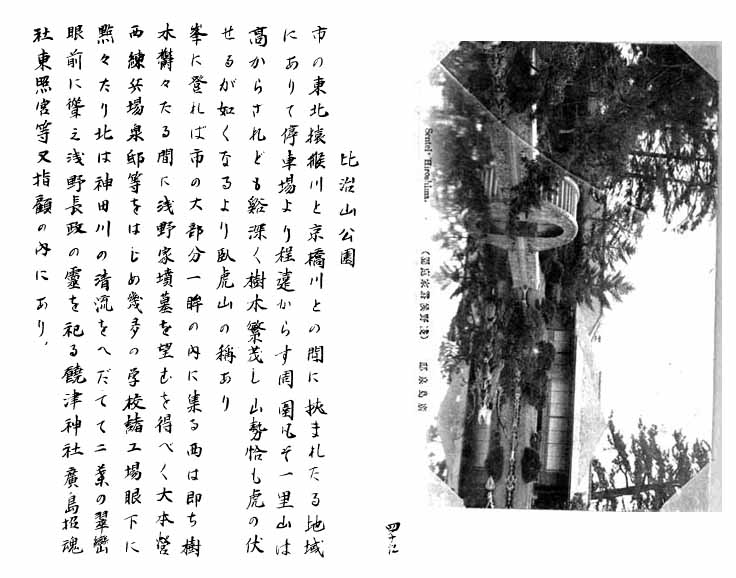 比治山公園
市の東北猿猴川と京橋川との間に挾まれたる地域
にありて停車場より程遠からす周圍凡そ一里山は
高からされども谿深く樹木繁茂し山勢恰も虎の伏
せるが如くなるより臥虎山の稱あり
峯に登れば市の大部分一眸の内に集る西は即ち樹
木欝々たる間に浅野家墳墓を望むを得べく大本營
西練兵場泉邸等をはじめ幾多の学校諸工場眼下に
點々たり北は神田川の清流をへだてて二葉の翠巒
眼前に聳え浅野長政の靈を祀る饒津神社廣島招魂
社東照宮等又指顧の内にあり、
Sentei-Hiroshima.
(淺野侯爵家庭園) 廣島泉邸